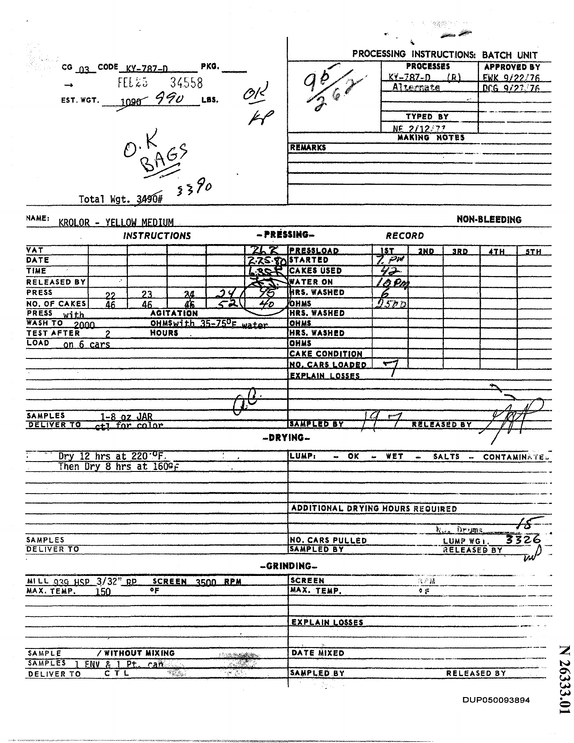 PROCESSING INSTRUCTIONS: BATCH UNIT
CG 03 CODE KY-787-D PKG.
PROCESSES APPROVED BY
KY-787-D (R) EWK 9/22/76
Alternate DCG 9/27/76
→ FEB 25 34558
EST. WGT. 1090 990 LBS.
OK
KP
95/262
TYPED BY
NF 2/12/77
MAKING NOTES
REMARKS
O.K
BAGS
3390
Total Wgt. 3490#
NAME: KROLOR - YELLOW MEDIUM NON-BLEEDING
INSTRUCTIONS -PRESSING- RECORD
VAT 262 PRESSLOAD 1ST 2ND 3RD 4TH 5TH
DATE 2-25-80 STARTED 7 PM
TIME CAKES USED 42
RELEASED BY WATER ON 10 PM
PRESS 22 23 24 24 45 HRS. WASHED 6
NO. OF CAKES 46 46 46 52 40 OHMS 2500
PRESS with AGITATION HRS. WASHED
WASH TO 2000 OHMS with 35-75°F water OHMS
TEST AFTER 2 HOURS HRS. WASHED
LOAD on 6 cars OHMS
CAKE CONDITION
NO. CARS LOADED 7
EXPLAIN LOSSES
SAMPLES 1-8 oz JAR
DELIVER TO ctl for color SAMPLED BY 197 RELEASED BY
-DRYING-
Dry 12 hrs at 220°F. LUMP: - OK - WET - SALTS - CONTAMINATE-
Then Dry 8 hrs at 160°F
ADDITIONAL DRYING HOURS REQUIRED
No. Drums 15
SAMPLES NO. CARS PULLED LUMP WGT. 3326
DELIVER TO SAMPLED BY RELEASED BY
-GRINDING-
MILL 939 HSP 3/32" RP SCREEN 3500 RPM SCREEN RPM
MAX. TEMP. 150 °F MAX. TEMP. °F
EXPLAIN LOSSES
SAMPLE / WITHOUT MIXING DATE MIXED
SAMPLES 1 ENV & 1 Pt. can
DELIVER TO C T L SAMPLED BY RELEASED BY
N 26333.01
DUP050093894